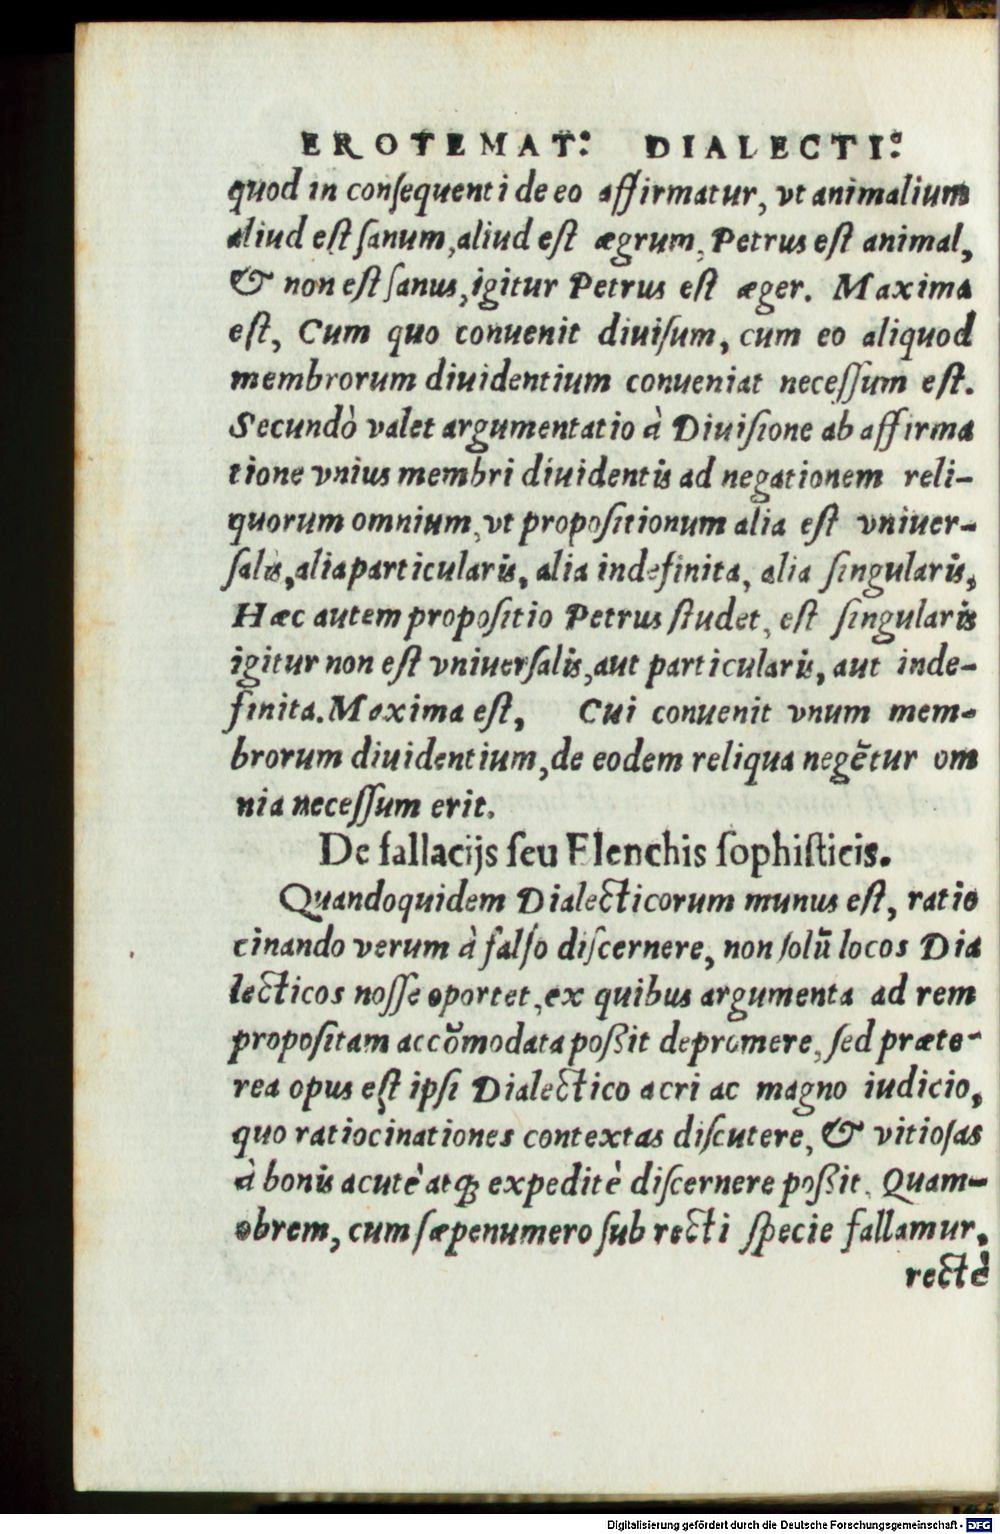 EROTEMAT: DIALECTI:
quod in conſequenti de eo affirmatur, vt animalium
aliud eſt ſanum, aliud eſt ægrum, Petrus eſt animal,
& non eſt ſanus, igitur Petrus eſt æger. Maxima
eſt, Cum quo conuenit diuiſum, cum eo aliquod
membrorum diuidentium conueniat neceſſum eſt.
Secundò valet argumentatio à Diuiſione ab affirma
tione vnius membri diuidentis ad negationem reli-
quorum omnium, vt propoſitionum alia eſt vniuer-
ſalis, alia particularis, alia indefinita, alia ſingularis,
Hæc autem propoſitio Petrus ſtudet, eſt ſingularis
igitur non eſt vniuerſalis, aut particularis, aut inde-
finita. Maxima eſt, Cui conuenit vnum mem-
brorum diuidentium, de eodem reliqua negẽtur om
nia neceſſum erit.
De fallacijs ſeu Elenchis ſophiſticis.
Quandoquidem Dialecticorum munus eſt, ratio
cinando verum à falſo diſcernere, non ſolũ locos Dia
lecticos noſſe oportet, ex quibus argumenta ad rem
propoſitam accõmodata poßit depromere, ſed præte-
rea opus eſt ipſi Dialectico acri ac magno iudicio,
quo ratiocinationes contextas diſcutere, & vitioſas
à bonis acutè atq́; expeditè diſcernere poßit. Quam-
obrem, cum ſæpenumero ſub recti ſpecie fallamur,
rectè
Digitalisierung gefördert durch die Deutsche Forschungsgemeinschaft - DFG